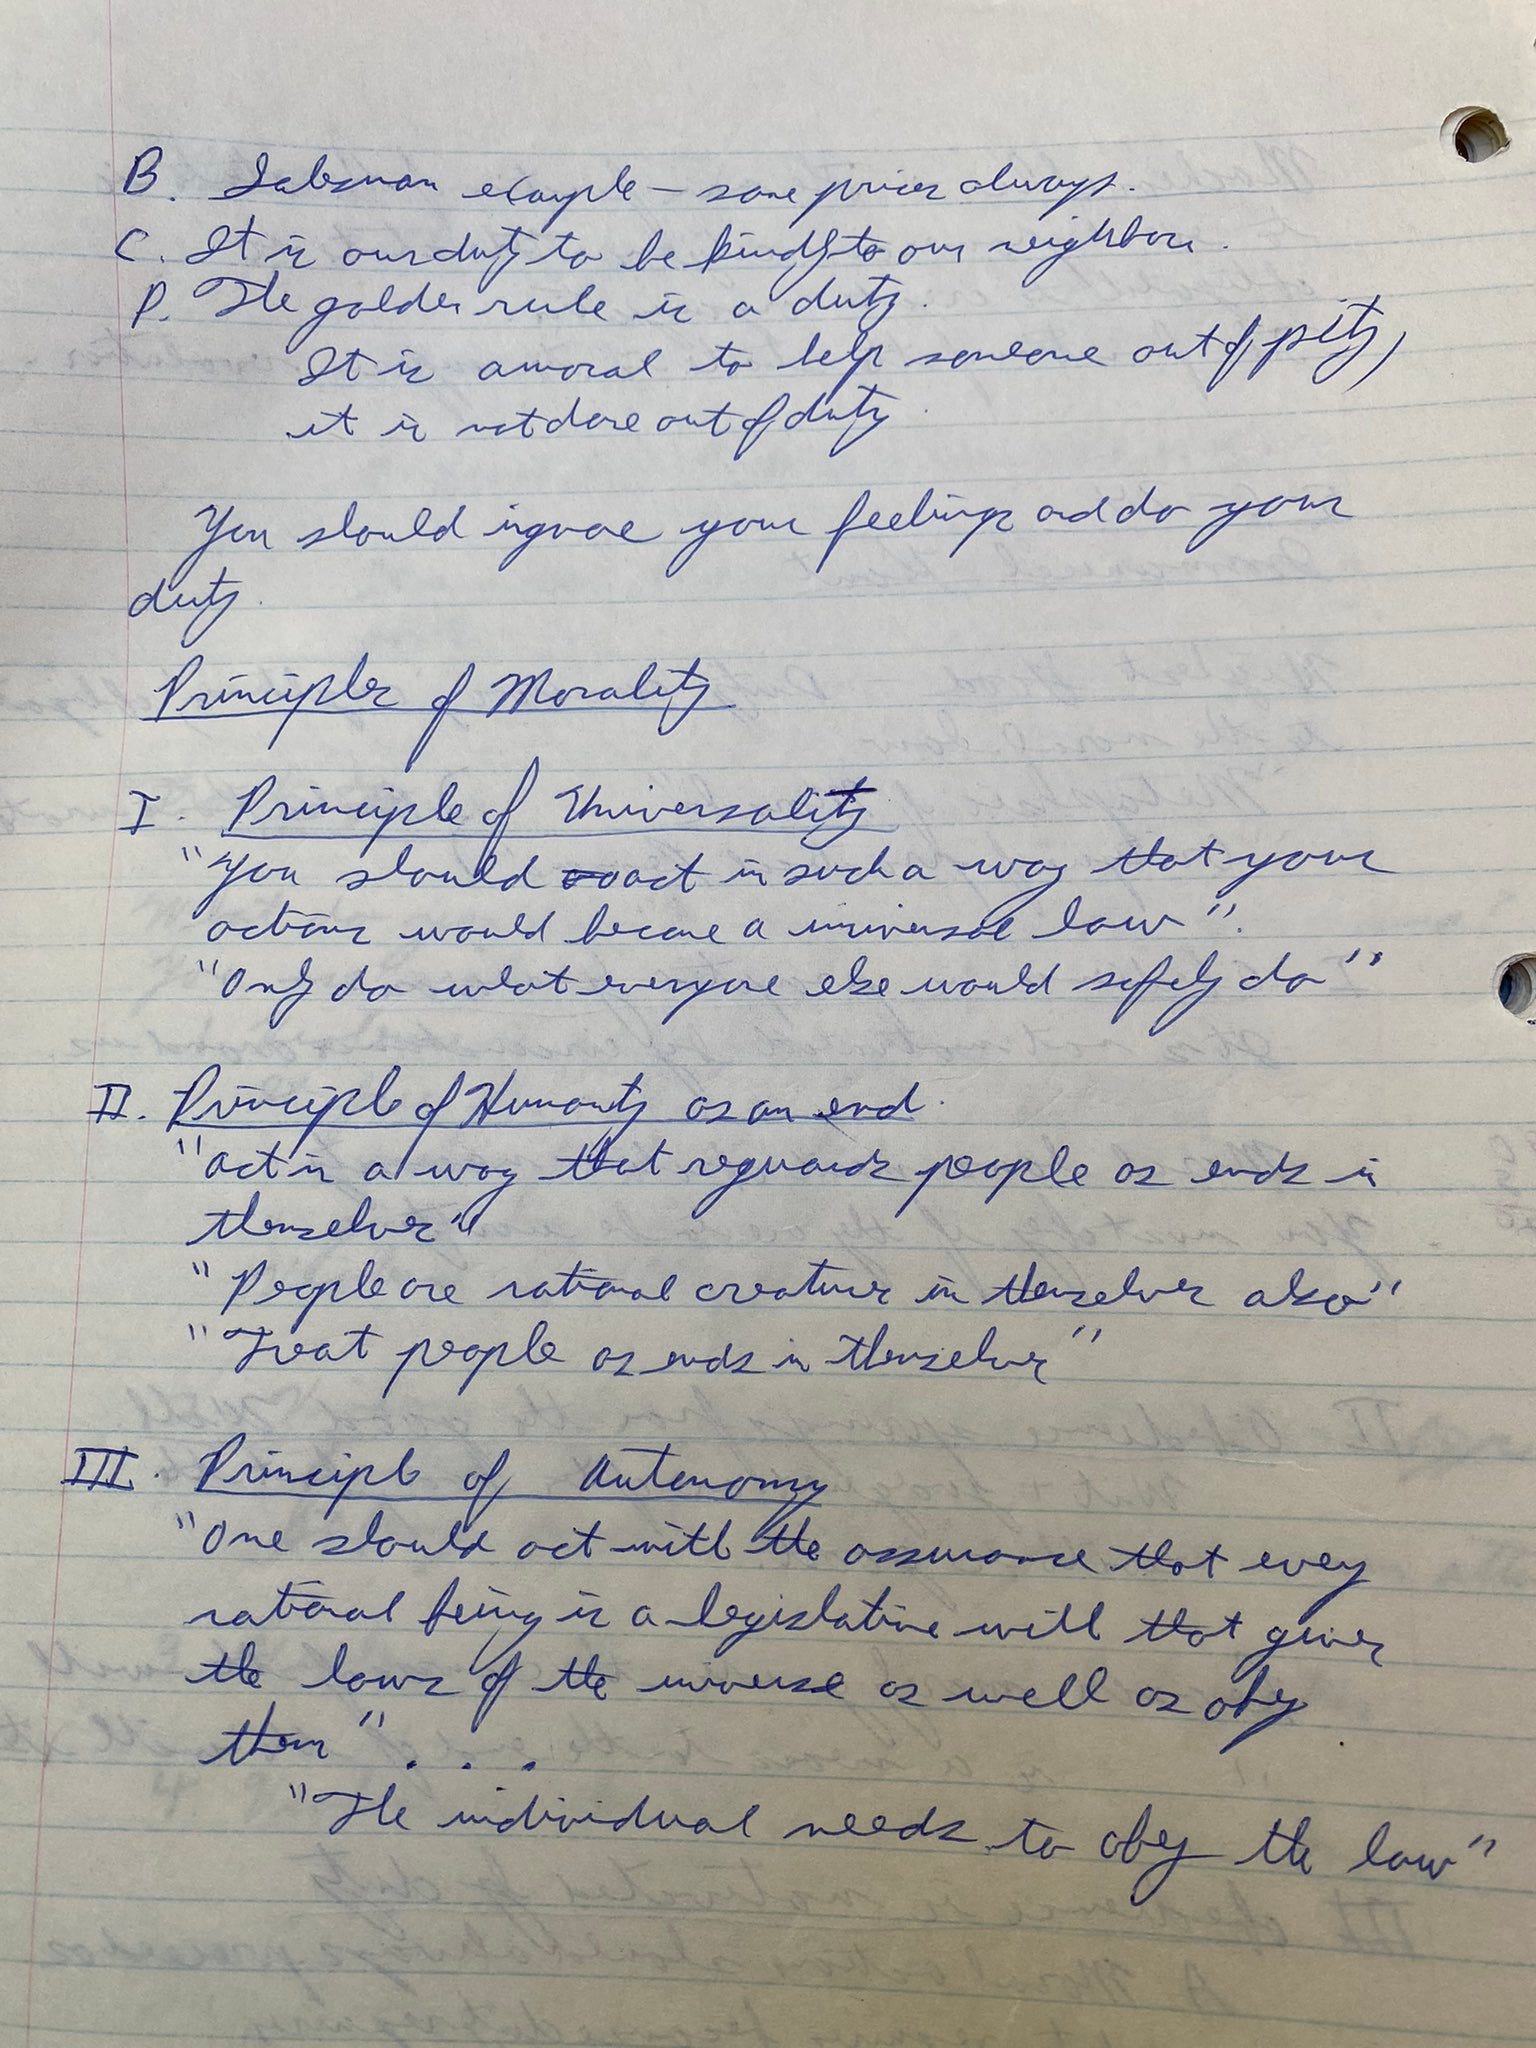 B. Salesman example – same prices always.
C. It is our duty to be kind to our neighbors.
D. The golden rule is a duty.
It is amoral to help someone out of pity,
it is not done out of duty.
You should ignore your feelings and do your
duty.
Principles of Morality
I. Principle of Universality
"You should act in such a way that your
actions would become a universal law".
"Only do what everyone else would safely do"
II. Principle of Humanity as an end.
"act in a way that reguards people as ends in
themselves"
"People are rational creatures in themselves also"
"Treat people as ends in themselves"
III. Principle of Autonomy
"One should act with the assurance that every
rational being is a legislative will that gives
the laws of the universe as well as obey
them" . . .
"The individual needs to obey the law"